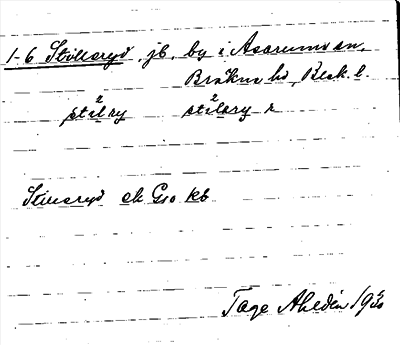 1-6 Stillaryd, jb, by i Asarums sn,
Bräkne hd, Blek. l.
stilɑry stilary r
Stilleryd ek Gso kb
Tage Ahldén 1930